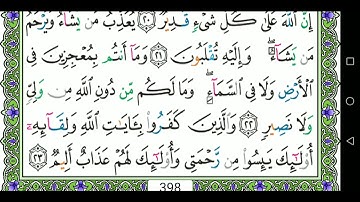 إِنَّ ٱللَّهَ عَلَىٰ كُلِّ شَىْءٍ قَدِيرٌ ٢٠ يُعَذِّبُ مَن يَشَآءُ وَيَرْحَمُ
مَن يَشَآءُ ۖ وَإِلَيْهِ تُقْلَبُونَ ٢١ وَمَآ أَنتُم بِمُعْجِزِينَ فِى
ٱلْأَرْضِ وَلَا فِى ٱلسَّمَآءِ ۖ وَمَا لَكُم مِّن دُونِ ٱللَّهِ مِن وَلِىٍّ
وَلَا نَصِيرٍ ٢٢ وَٱلَّذِينَ كَفَرُوا۟ بِـَٔايَـٰتِ ٱللَّهِ وَلِقَآئِهِۦٓ
أُو۟لَـٰٓئِكَ يَئِسُوا۟ مِن رَّحْمَتِى وَأُو۟لَـٰٓئِكَ لَهُمْ عَذَابٌ أَلِيمٌ ٢٣
398